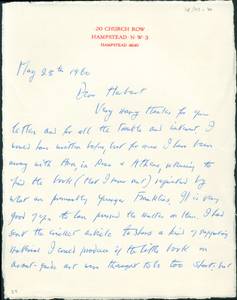 20 CHURCH ROW
HAMPSTEAD · N·W·3
HAMPSTEAD
May 25th 1960
Dear Herbert
Very many thanks for your
letter and for all the trouble and interest. I
would have written before, but for
away with Ann, in Rome & Athens, returning to
find the book (that I never sent) rejected by
what are presumably younger Franklins. It is very
good of you to have pursued the matter so far. I had
sent the cricket article to show a kind of supporting
material I could produce if the little book on
avant-garde art were thought to be too short, but